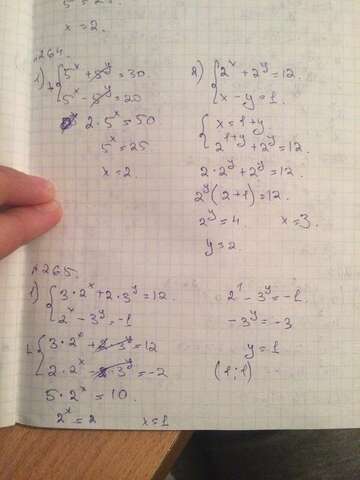 x = 2.
№264.
1) { 5^x + 5^y = 30
5^x - 5^y = 20
2 · 5^x = 50
5^x = 25
x = 2.
2) { 2^x + 2^y = 12.
x - y = 1.
{ x = 1 + y
2^{1+y} + 2^y = 12.
2 · 2^y + 2^y = 12.
2^y (2 + 1) = 12.
2^y = 4. x = 3.
y = 2.
№265.
1) { 3 · 2^x + 2 · 3^y = 12.
2^x - 3^y = -1
{ 3 · 2^x + 2 · 3^y = 12
2 · 2^x - 2 · 3^y = -2
5 · 2^x = 10.
2^x = 2 x = 1
2^1 - 3^y = -1.
- 3^y = -3
y = 1
(1; 1)